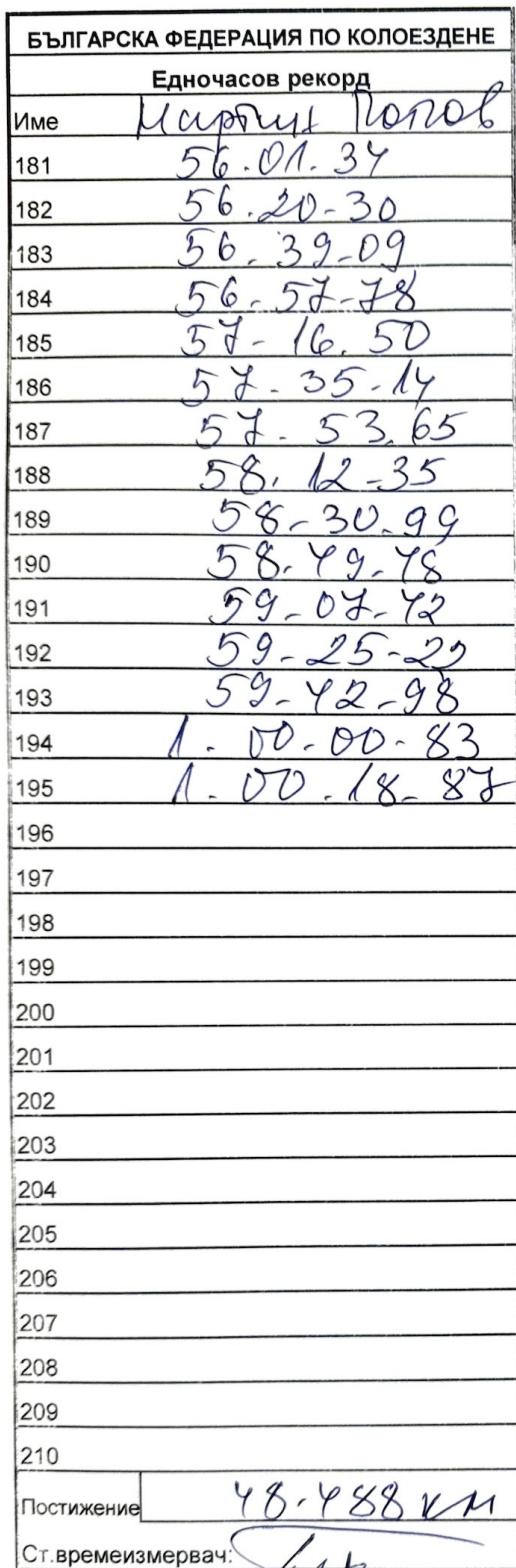 БЪЛГАРСКА ФЕДЕРАЦИЯ ПО КОЛОЕЗДЕНЕ
Едночасов рекорд
Име Мартин Попов
181 56.01.34
182 56.20-30
183 56.39-09
184 56-57-78
185 57-16.50
186 57.35-14
187 57.53.65
188 58.12-35
189 58-30.99
190 58.49-48
191 59-07-42
192 59-25-22
193 59-42-98
194 1.00-00-83
195 1.00.18-87
196
197
198
199
200
201
202
203
204
205
206
207
208
209
210
Постижение 48.488 км
Ст.времеизмервач: